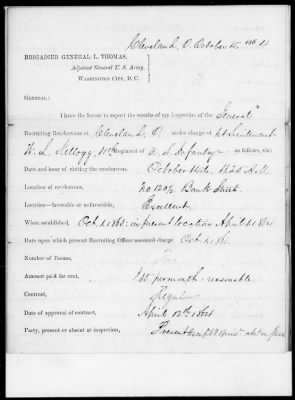 Cleveland, O. October 15, 1864
BRIGADIER GENERAL L. THOMAS,
Adjutant General U. S. Army,
WASHINGTON CITY, D. C.
GENERAL:
I have the honor to report the results of my inspection of the "General"
Recruiting Rendezvous at Cleveland, O. under charge of 1st Lieutenant
W. L. Kellogg, 10th Regiment of U. S. Infantry as follows, viz:
Date and hour of visiting the rendezvous, October 14th,
Location of rendezvous, No 120½ Bank Street.
Location—favorable or unfavorable, Excellent.
When established, Oct 1 1863: in present location April 1 1864
Date upon which present Recruiting Officer assumed charge Oct 1 186
Number of Rooms,
Amount paid for rent, per month reasonable
Contract, Regular
Date of approval of contract, April 12th 1864
Party, present or absent at inspection, Present